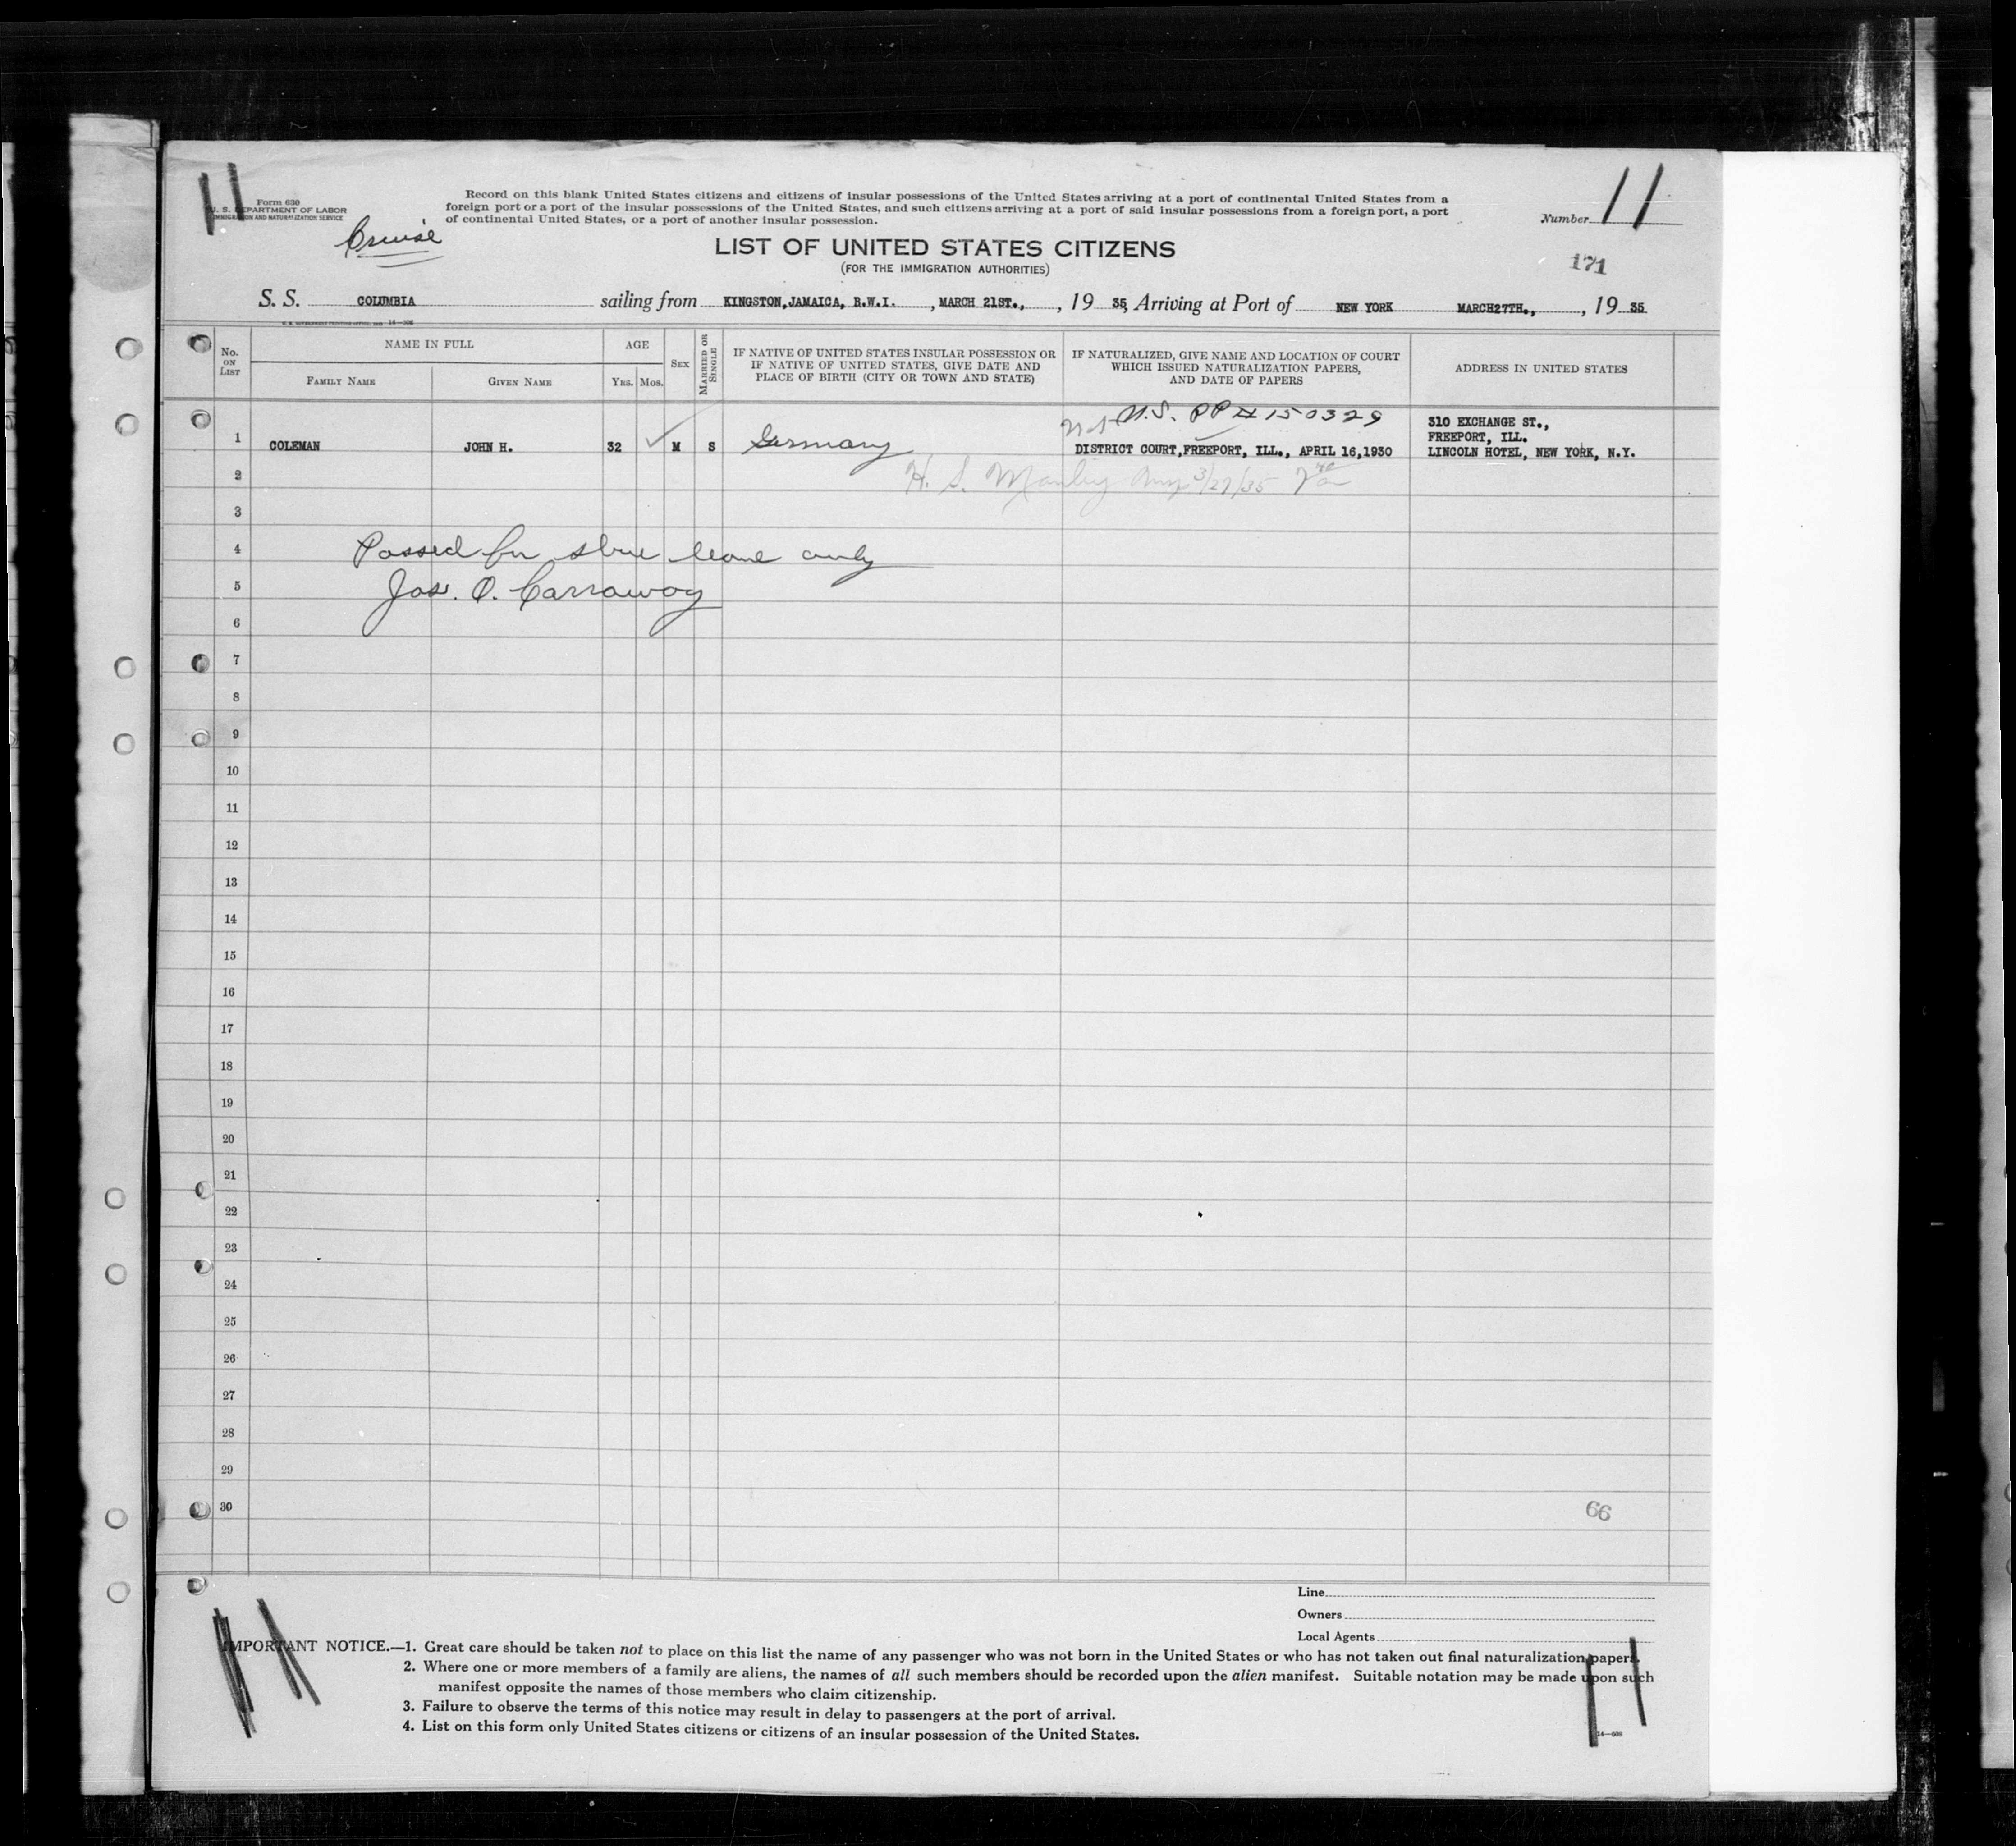 Form 630
U. S. DEPARTMENT OF LABOR
IMMIGRATION AND NATURALIZATION SERVICE
Cruise
Record on this blank United States citizens and citizens of insular possessions of the United States arriving at a port of continental United States from a
foreign port or a port of the insular possessions of the United States, and such citizens arriving at a port of said insular possessions from a foreign port, a port
of continental United States, or a port of another insular possession.
Number 11
LIST OF UNITED STATES CITIZENS
(FOR THE IMMIGRATION AUTHORITIES)
171
S. S. COLUMBIA sailing from KINGSTON,JAMAICA, B.W.I. , MARCH 21ST., , 19 35, Arriving at Port of NEW YORK MARCH27TH., , 19 35
U. S. GOVERNMENT PRINTING OFFICE 14—506
No. ON LIST
NAME IN FULL
FAMILY NAME
GIVEN NAME
AGE
YRS. MOS.
SEX
MARRIED OR SINGLE
IF NATIVE OF UNITED STATES INSULAR POSSESSION OR
IF NATIVE OF UNITED STATES, GIVE DATE AND
PLACE OF BIRTH (CITY OR TOWN AND STATE)
IF NATURALIZED, GIVE NAME AND LOCATION OF COURT
WHICH ISSUED NATURALIZATION PAPERS,
AND DATE OF PAPERS
ADDRESS IN UNITED STATES
U.S. PP # 150329
1 COLEMAN JOHN H. 32 M S Germany DISTRICT COURT,FREEPORT, ILL., APRIL 16,1930
310 EXCHANGE ST.,
FREEPORT, ILL.
LINCOLN HOTEL, NEW YORK, N.Y.
2 H. S. 3/27/35
3
4 Passed for shore leave only
5 Jas. O. Carraway
6
7
8
9
10
11
12
13
14
15
16
17
18
19
20
21
22
23
24
25
26
27
28
29
30
66
Line
Owners
Local Agents
IMPORTANT NOTICE.—1. Great care should be taken not to place on this list the name of any passenger who was not born in the United States or who has not taken out final naturalization papers.
2. Where one or more members of a family are aliens, the names of all such members should be recorded upon the alien manifest. Suitable notation may be made upon such
manifest opposite the names of those members who claim citizenship.
3. Failure to observe the terms of this notice may result in delay to passengers at the port of arrival.
4. List on this form only United States citizens or citizens of an insular possession of the United States.
14—506
11
11
11